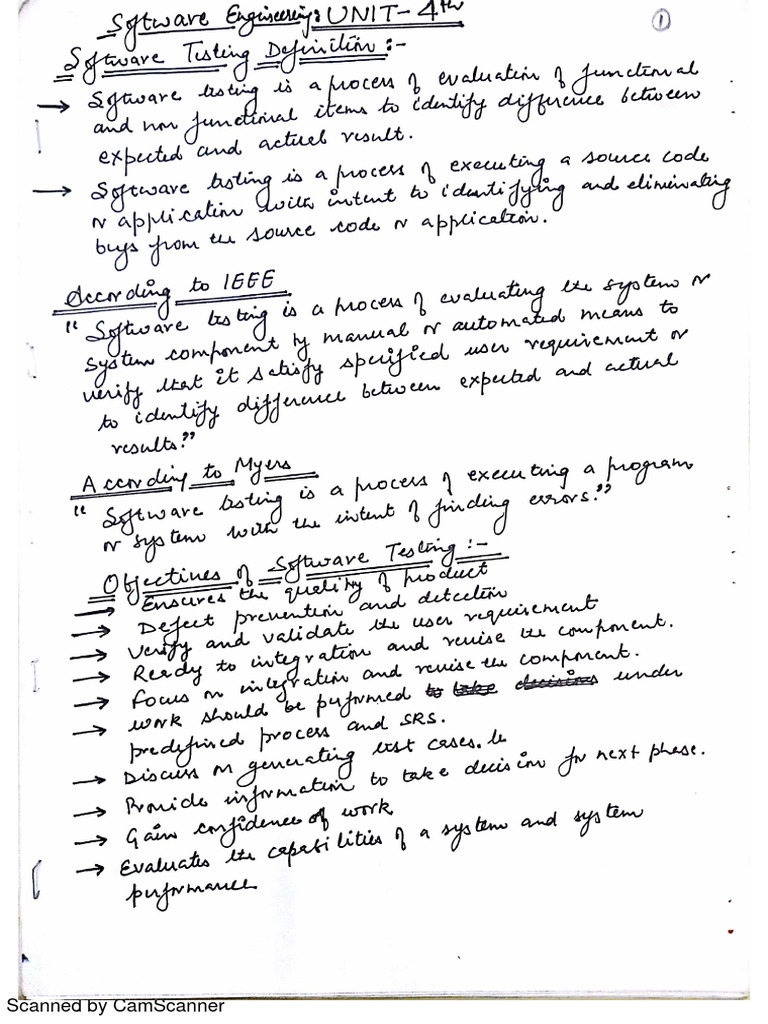 Software Engineering: UNIT-4th
1
Software Testing Definition :-
→ Software testing is a process of evaluation of functional
and non functional items to identify difference between
expected and actual result.
→ Software testing is a process of executing a source code
or application with intent to identifying and eliminating
bugs from the source code or application.
According to IEEE
“ Software testing is a process of evaluating the system or
system component by manual or automated means to
verify that it satisfy specified user requirement or
to identify difference between expected and actual
results.”
According to Myers
“ Software testing is a process of executing a program
or system with the intent of finding errors.”
Objectives of Software Testing :-
→ Ensures the quality of product
→ Defect prevention and detection
→ Verify and validate the user requirement
→ Ready to integration and revise the component.
→ Focus on integration and revise the component.
→ Work should be performed to take decisions under
predefined process and SRS.
→ Discuss on generating test cases.
→ Provide information to take decision for next phase.
→ Gain confidence of work
→ Evaluates the capabilities of a system and system
performance
Scanned by CamScanner